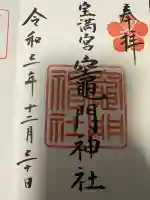 奉拝
宝満宮
竈門神社
令和三年十二月三十日